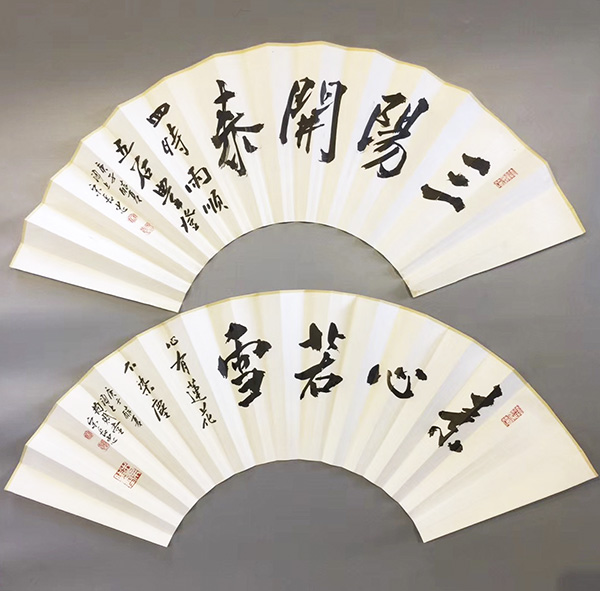 三陽開泰
四時雨順
五谷豐登
素心若雪
心有蓮花
不染塵